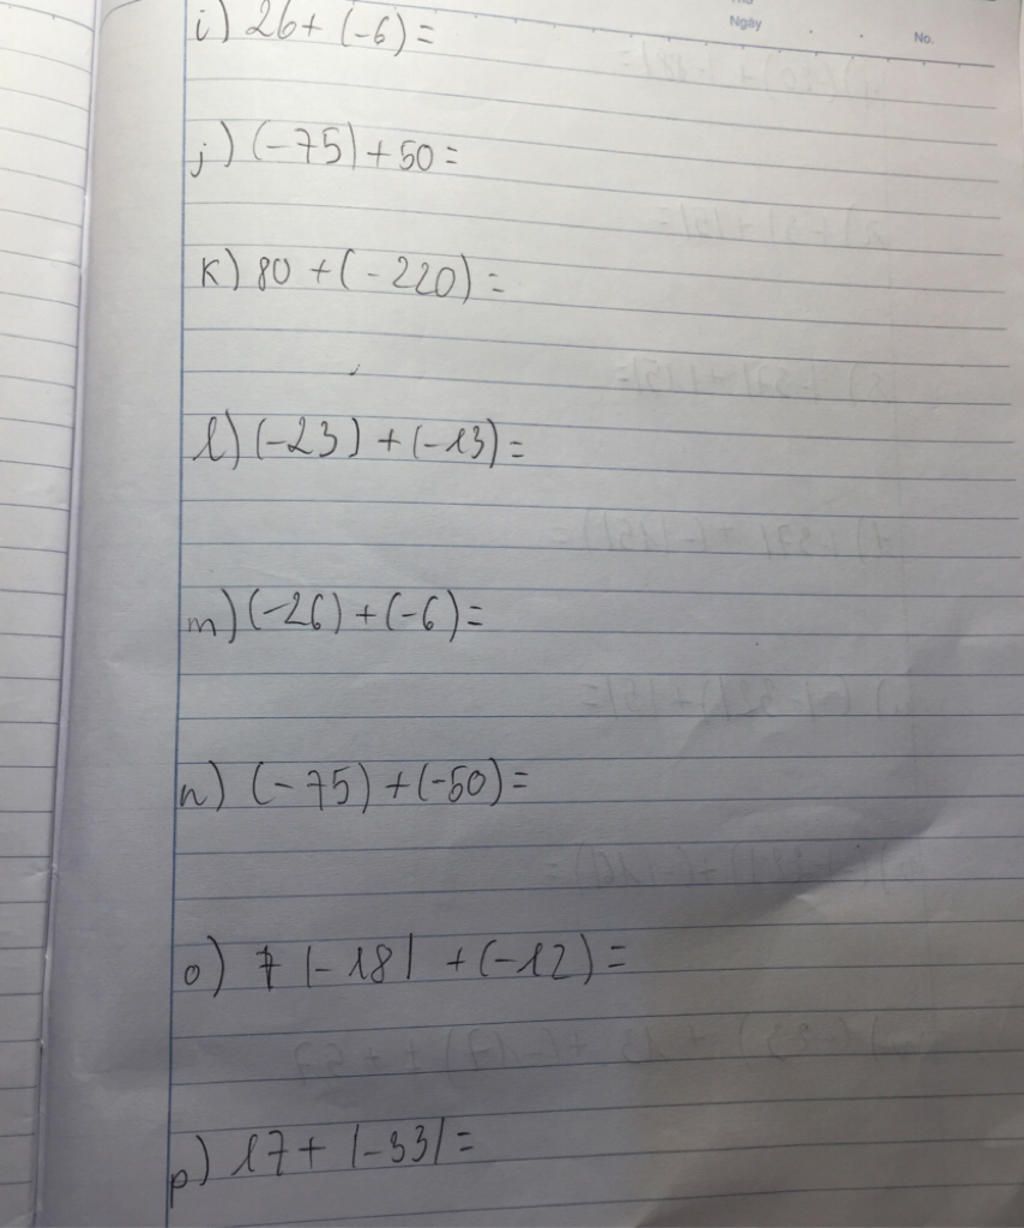 Ngày
No.
i) 26 + (-6) =
j) (-75) + 50 =
k) 80 + (-220) =
l) (-23) + (-13) =
m) (-26) + (-6) =
n) (-75) + (-50) =
o) |-18| + (-12) =
p) 17 + |-33| =